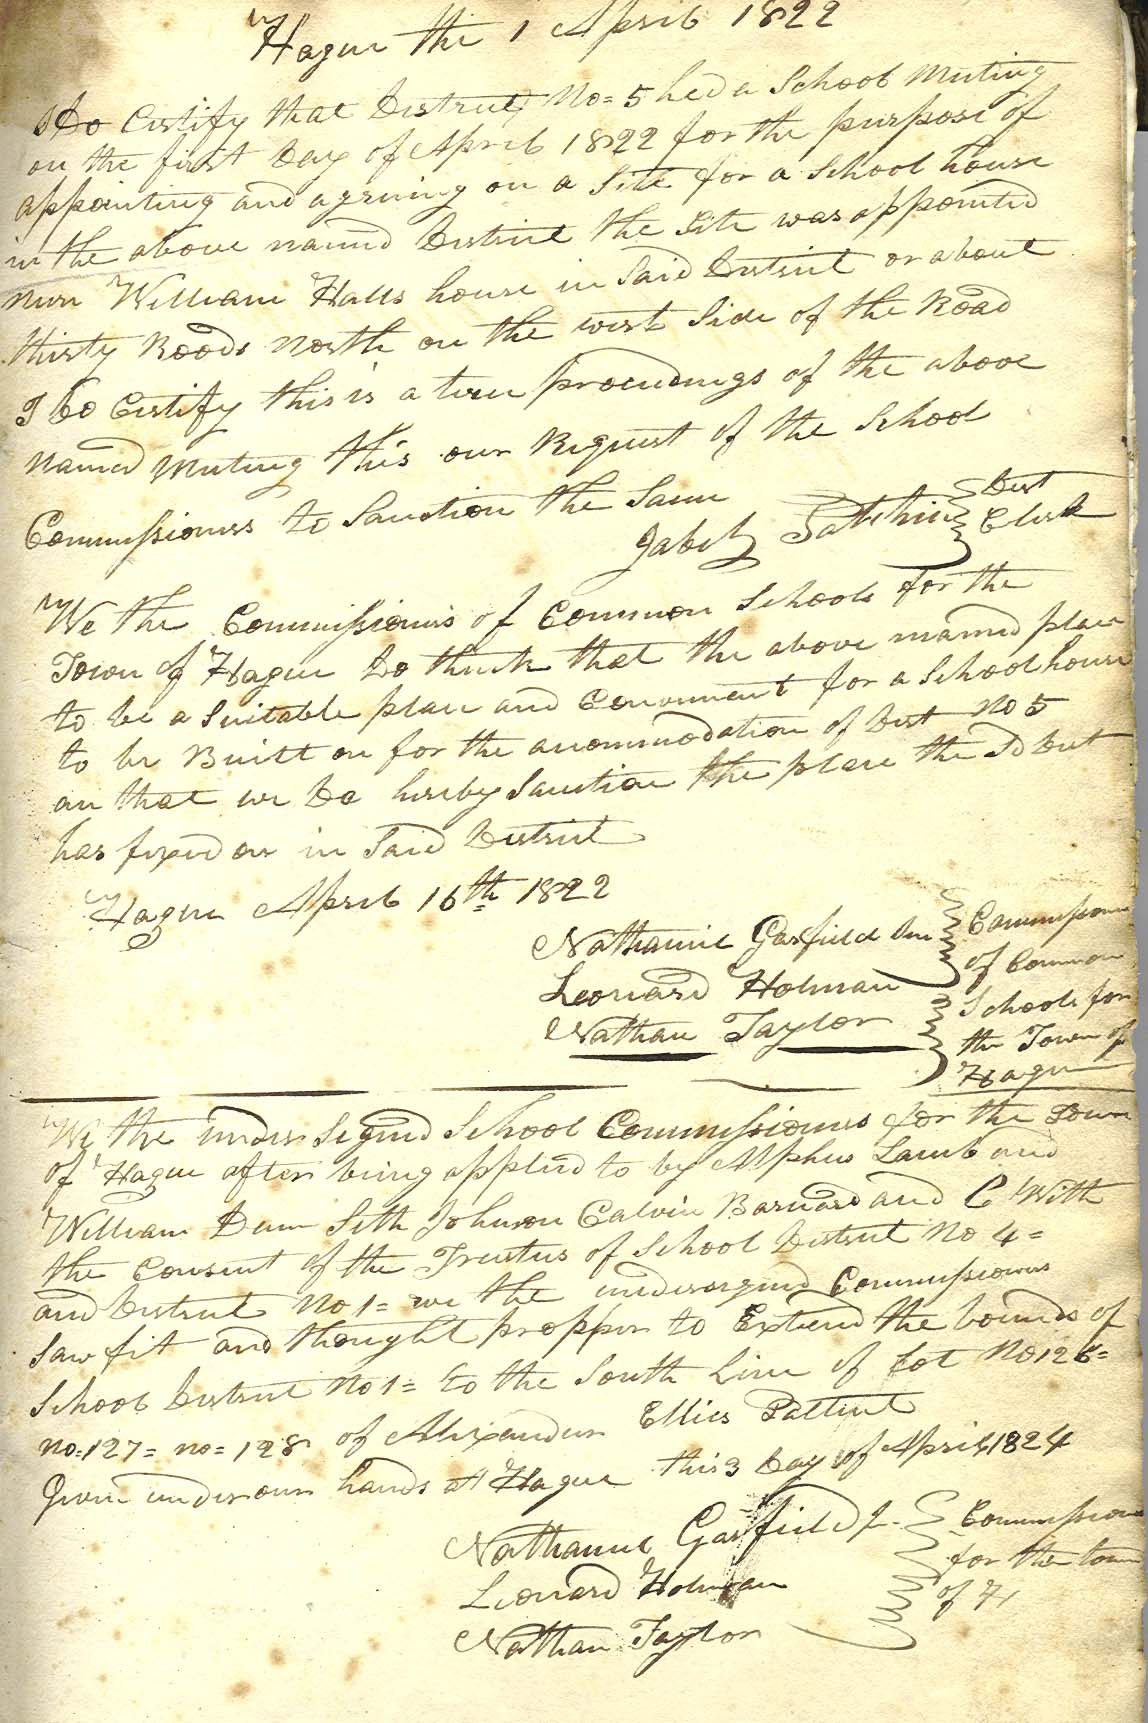 Hague the 1 April 1822
I Do Certify that District No= 5 held a School Meeting
on the first Day of April 1822 for the purpose of
appointing and agreeing on a Site for a School house
in the above named District the Site was appointed
near William Halls house in Said District or about
thirty Roods North on the west Side of the Road
I Do Certify this is a true proceedings of the above
named Meeting this our Request of the School
Commissioners to Sanction the Same
Jabez Patchin Dist
Clerk
We the Commissioners of Common Schools for the
Town of Hague Do think that the above named place
to be a Suitable place and Convenient for a School house
to be Built on for the accommodation of Dist No 5
on that we Do hereby Sanction the place the Sd Dist
has fixed on in Said District
Hague April 16th 1822
Nathaniel Garfield Jun
Leonard Holman
Nathan Taylor
Commissioners
of Common
Schools for
the Town of
Hague
We the under Signed School Commissioners for the Town
of Hague after being applied to by Alpheus Lamb and
William Dunn Seth Johnson Calvin Barnard and C With
the Consent of the Trustees of School District No 4=
and District No 1= we the undersigned Commissioners
Saw fit and thought propper to Extend the bounds of
School District No 1= to the South Line of Lot No 126=
no=127= no=128 of Alexander Ellices Pattent
Given under our hands at Hague this 3 Day of April 1824
Nathaniel Garfield Jr
Leonard Holman
Nathan Taylor
Commissioners
for the town
of H